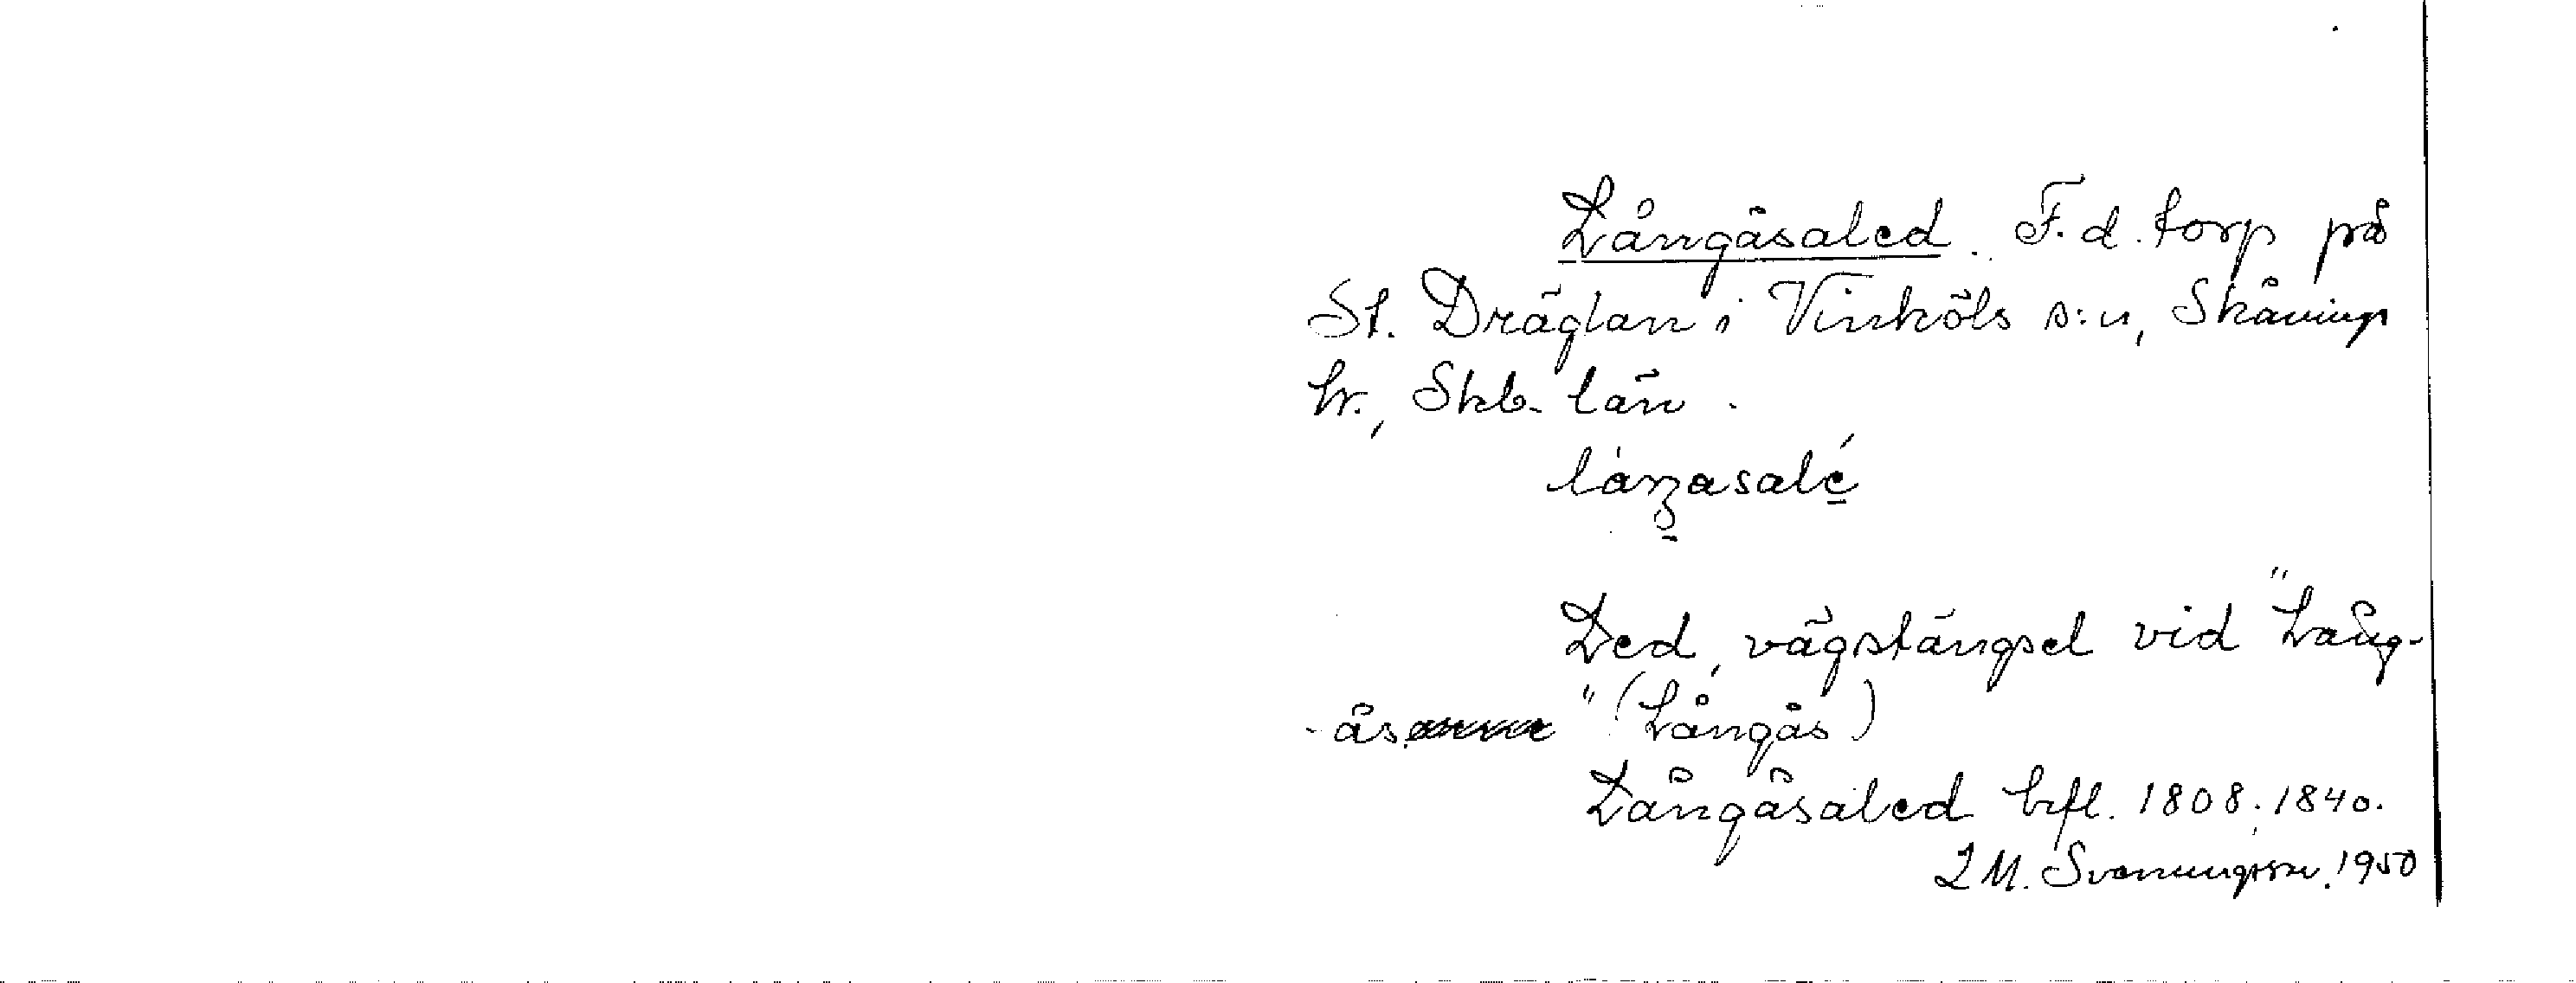 Långåsaled. F.d. torp på
St. Dräglan i Vinköls s:n, Skånings
hr., Skb. län.
Led, vägstängsel vid "Lång-
-ås" (Långås)
Långåsaled hfl. 1808; 1840.
I M. Svenungsson. 1950